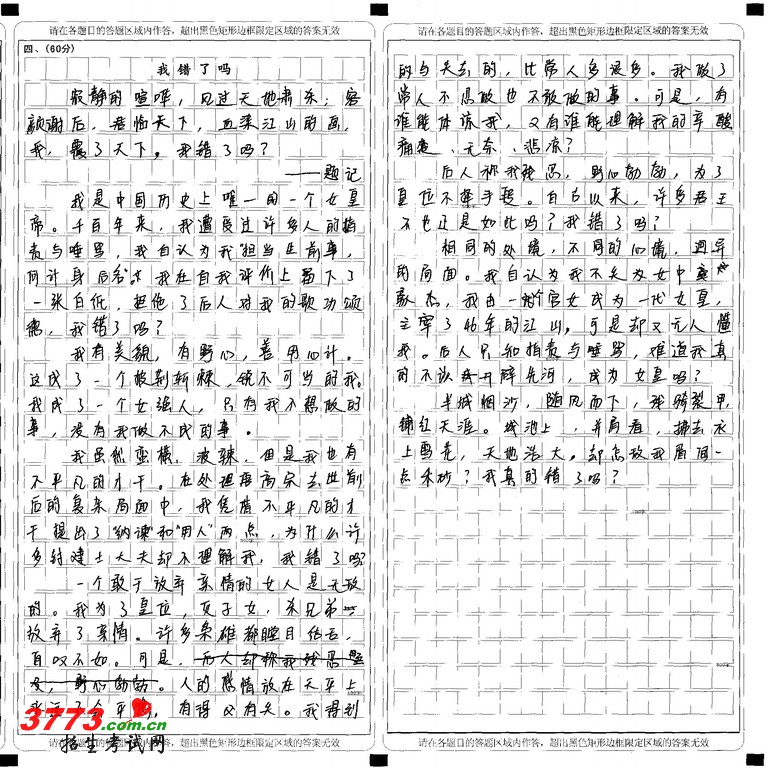 请在各题目的答题区域内作答，超出黑色矩形边框限定区域的答案无效
四、(60分)
我错了吗
寂静的喧哗，风过天地肃杀；容
颜谢后，君临天下，血染江山的画，
我，覆了天下。我错了吗？
——题记
我是中国历史上唯一的一个女皇
帝。千百年来，我遭受过许多人的指
责与唾骂，我自认为我"担当生前事，
何计身后名"。我在自我评价上留下了
一张白纸，把他了后人对我的歌功颂
德，我错了吗？
我有美貌，有野心，善用心计。
这成了一个披荆斩棘，锐不可当的我。
我成了一个女强人，只有我不想做的
事，没有我做不成的事。
我虽然蛮横，泼辣，但是我也有
不平凡的才干。在处理唐高宗去世前
后的复杂局面中，我凭借不平凡的才
干提出了"纳谏"和"用人"两点，为什么许
多封建士大夫却不理解我，我错了吗？
一个敢于放弃亲情的女人是无敌
的。我为了皇位，子女，杀兄弟
放弃了亲情。许多枭雄都瞠目结舌，
自叹不如。可是，后人却称我残忍
，野心勃勃。人的感情放在天平上
平，有得必有失。我得到
3773.com.cn
招生考试网
请在各题目的答题区域内作答，超出黑色矩形边框限定区域的答案无效
请在各题目的答题区域内作答，超出黑色矩形边框限定区域的答案无效
的与失去的，比常人多很多。我做了
常人不想做也不敢做的事。可是，有
谁能体谅我，又有谁能理解我的辛酸
痛楚、无奈、悲凉？
后人称我残忍，野心勃勃，为了
皇位不择手段。自古以来，许多君王
不也正是如此吗？我错了吗？
相同的处境，不同的心境，迥异
的局面。我自认为我不失为女中
豪杰，我由一个宫女成为一代女皇，
主宰了46年的江山。可是却又无人懂
我。后人只知指责与唾骂，难道我真
的不该开辟先河，成为女皇吗？
半城烟沙，随风而下，我骑裂甲
铺红天涯。城池上，并肩看，拂去衣
上雪花，天地浩大。却忘敌我眉间一
点朱砂？我真的错了吗？
请在各题目的答题区域内作答，超出黑色矩形边框限定区域的答案无效